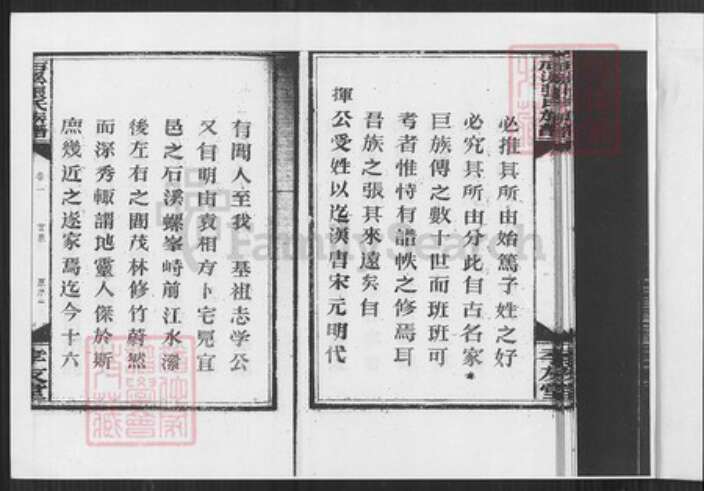 必推其所由始篤子姓之好
必究其所由分此自古名家
巨族傳之數十世而班班可
考者惟恃有譜帙之修焉耳
吾族之張其來遠矣自
揮公受姓以迄漢唐宋元明代
有聞人至我 基祖志学公
又自明由袁相方卜宅宛宜
邑之石溪螺峯峙前江水瀠
後左右之閣茂林修竹蔚然
而深秀輙謂地靈人傑於斯
庶幾近之遂家焉迄今十六
卷一
孝友堂
FamilySearch